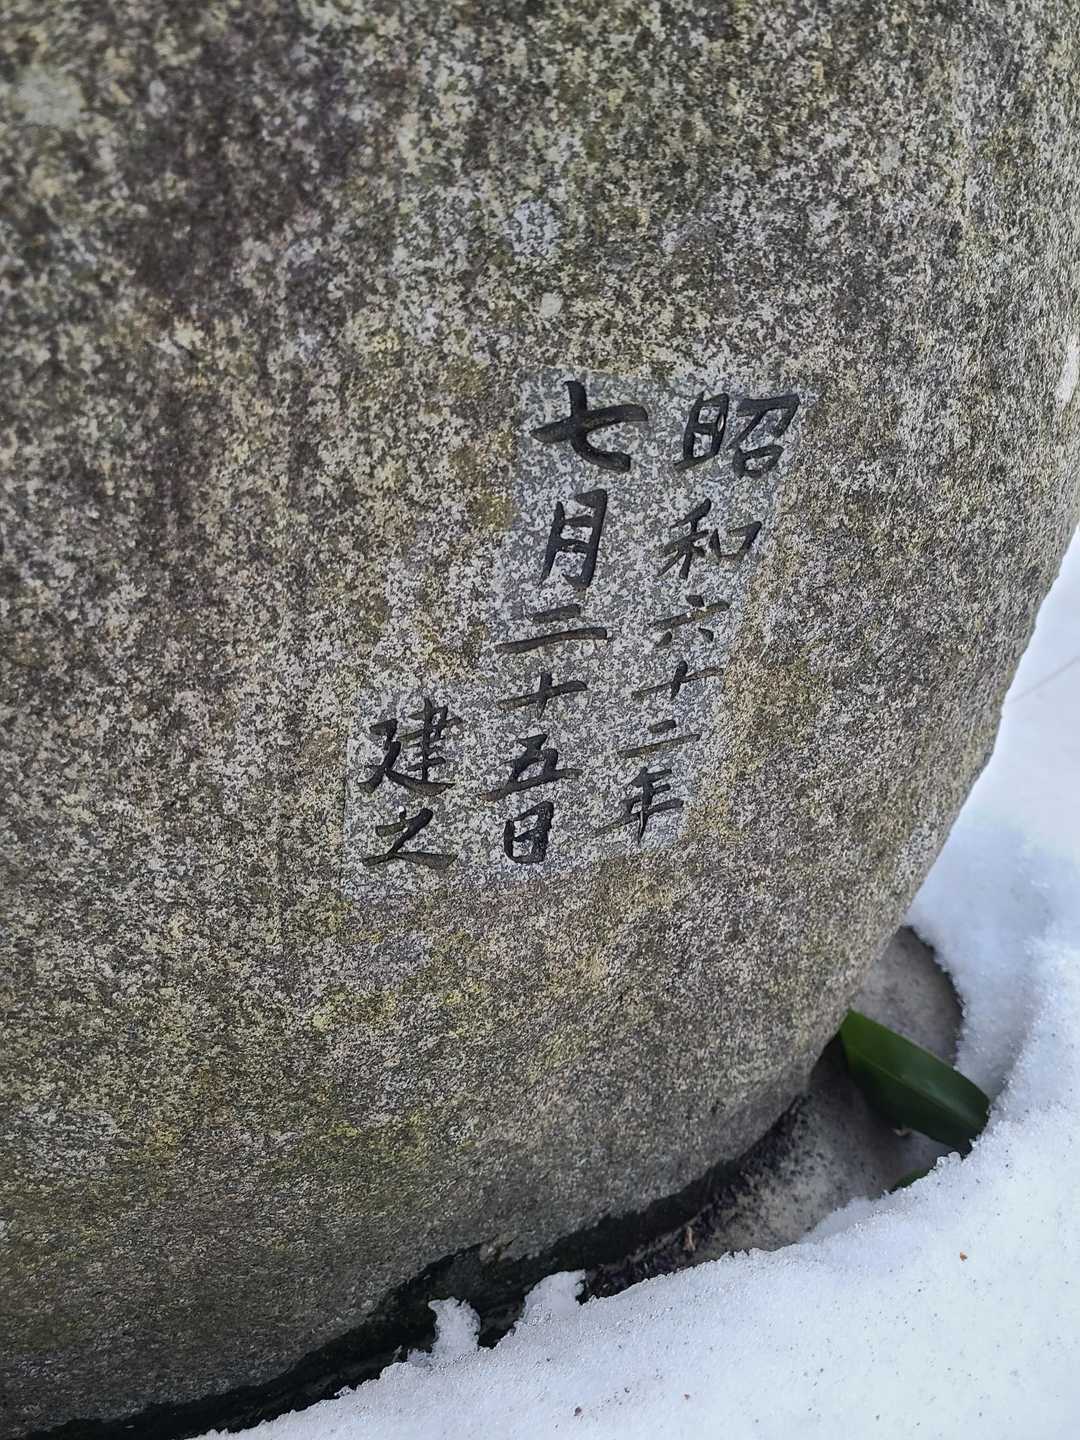 昭和六十二年
七月二十五日
建之